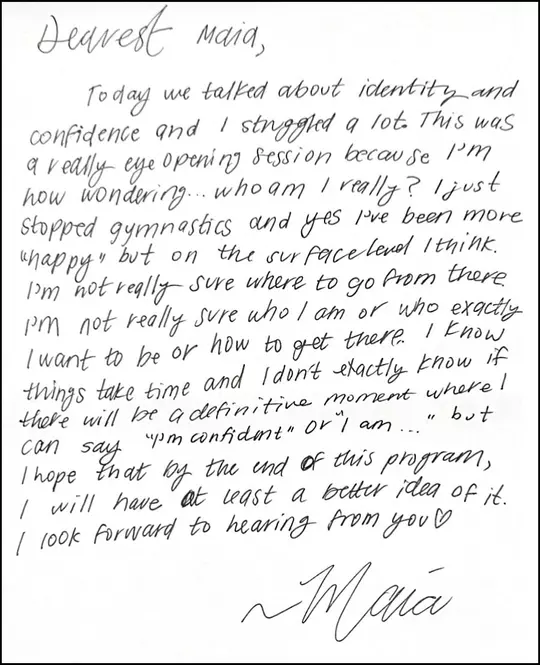 Dearest Maia,
Today we talked about identity and
confidence and I struggled a lot. This was
a really eye opening session because I'm
now wondering... who am I really? I just
stopped gymnastics and yes I've been more
"happy" but on the surface level I think.
I'm not really sure where to go from there
I'm not really sure who I am or who exactly
I want to be or how to get there. I know
things take time and I don't exactly know if
there will be a definitive moment where I
can say "I'm confident" or "I am..." but
I hope that by the end of this program,
I will have at least a better idea of it.
I look forward to hearing from you♡
~Maia